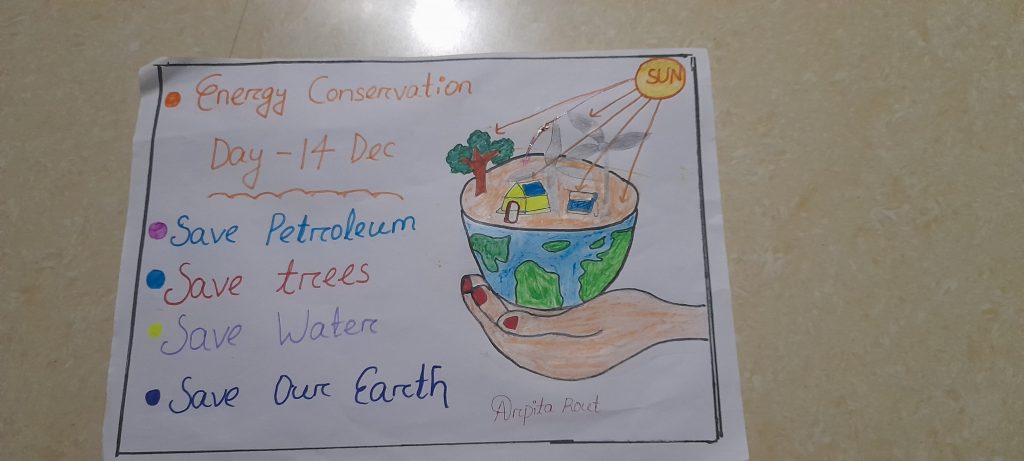 Energy Conservation
Day - 14 Dec
Save Petroleum
Save trees
Save Water
Save Our Earth
SUN
Arpita Rout